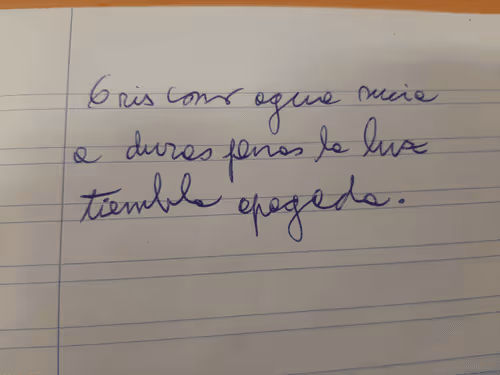 Gris como agua sucia
a duras penas la luz
tiembla apagada.